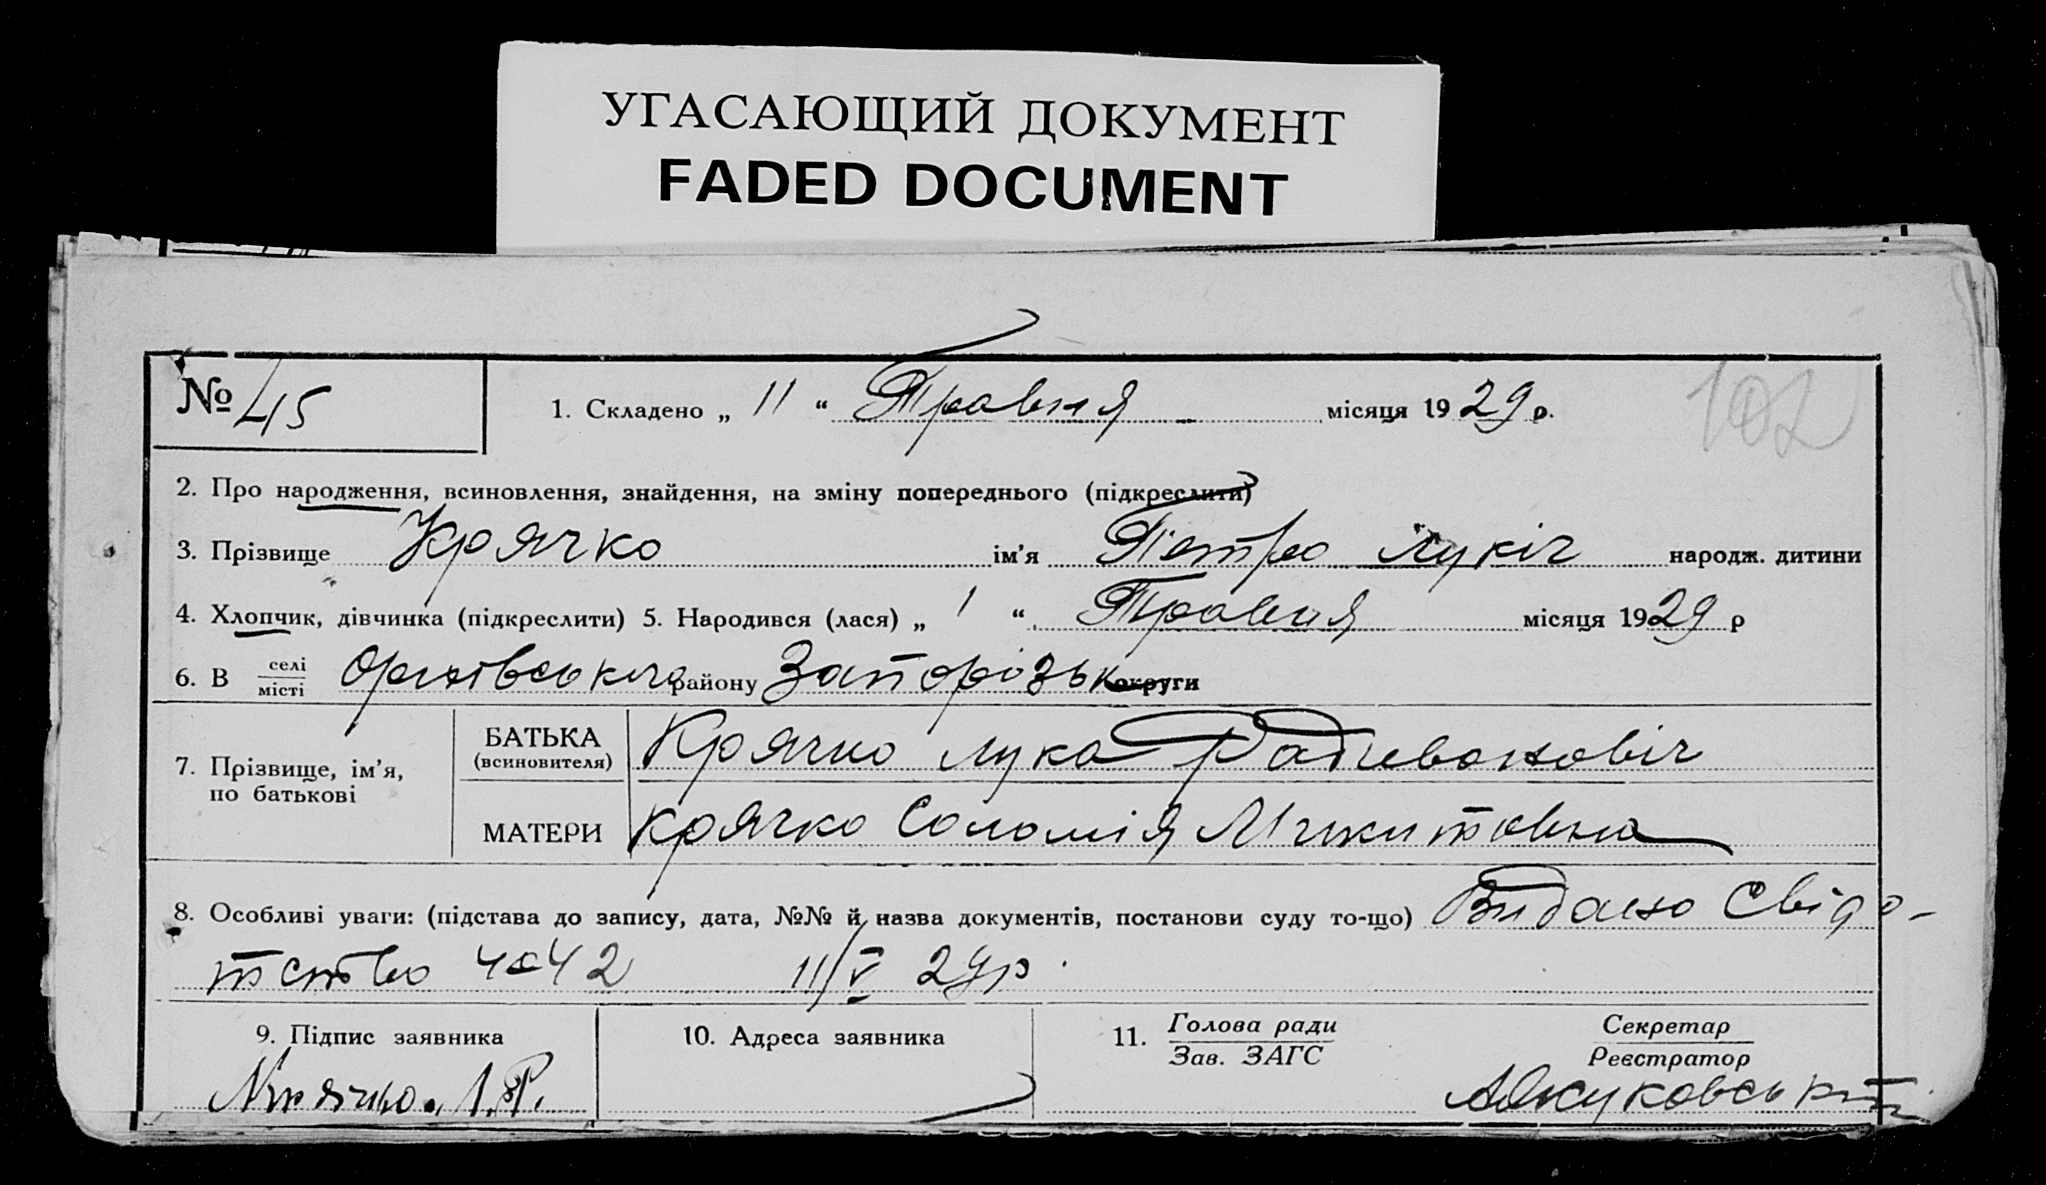 УГАСАЮЩИЙ ДОКУМЕНТ
FADED DOCUMENT
102
№ 45
1. Складено „ 11 “ Травня місяця 1929 р.
2. Про народження, всиновлення, знайдення, на зміну попереднього (підкреслити)
3. Прізвище Крячко ім’я Петро Лукіч народж. дитини
4. Хлопчик, дівчинка (підкреслити) 5. Народився (лася) „ 1 “ Травня місяця 1929 р
6. В селі місті району Запорізьк округи
7. Прізвище, ім’я, по батькові
БАТЬКА (всиновителя) Крячко Лука Радивоновіч
МАТЕРИ Крячко Соломія Микитовна
8. Особливі уваги: (підстава до запису, дата, №№ й назва документів, постанови суду то-що) Видано Свідо-
тство 4042 11/V 29р.
9. Підпис заявника 10. Адреса заявника 11. Голова ради Секретар
Зав. ЗАГС Реєстратор
Крячко. Л.Р. Жуковський